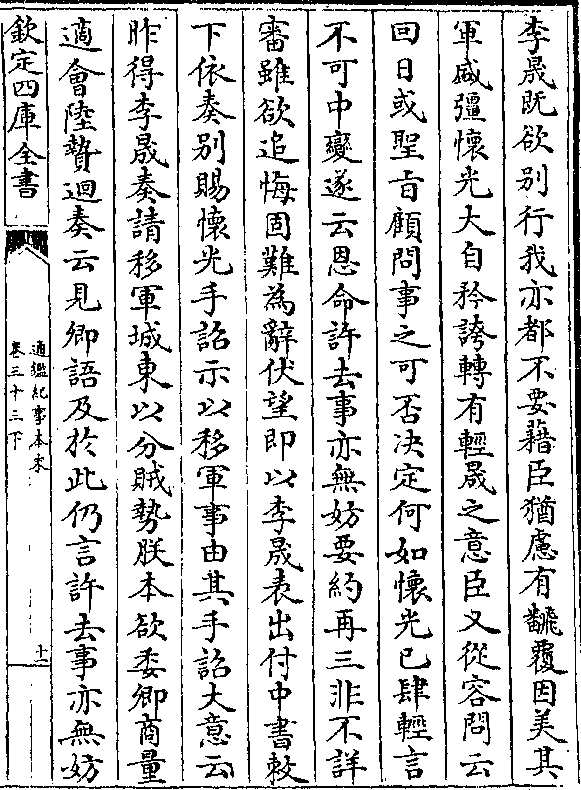 李晟既欲别行我亦都不要藉臣猶慮有翻覆因美其
軍盛彊懷光大自矜誇轉有輕晟之意臣又從容問云
回日或聖旨顧問事之可否决定何如懷光已肆輕言
不可中變遂云恩命許去事亦無妨要約再三非不詳
審雖欲追悔固難為辭伏望即以李晟表出付中書敕
下依奏别賜懷光手詔示以移軍事由其手詔大意云
昨得李晟奏請移軍城東以分賊勢朕本欲委卿商量
適會陸贄迴奏云見卿語及於此仍言許去事亦無妨
欽定四庫全書
通鑑紀事本末
卷三十三下
十一